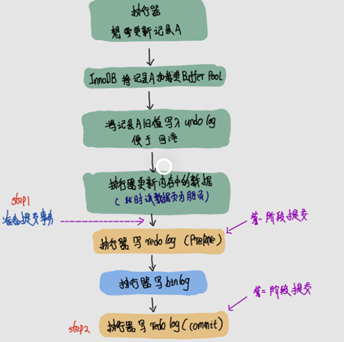 执行器
想要更新记录A
InnoDB 将记录A加载进Buffer Pool
将记录A旧值写入undo log
便于回滚
执行器更新内存中的数据
(此时该数据页为脏页)
step1
准备提交事务
执行器写redo log (Prepare)
第一阶段提交
执行器写binlog
第二阶段提交
step2
执行器写redo log(commit)